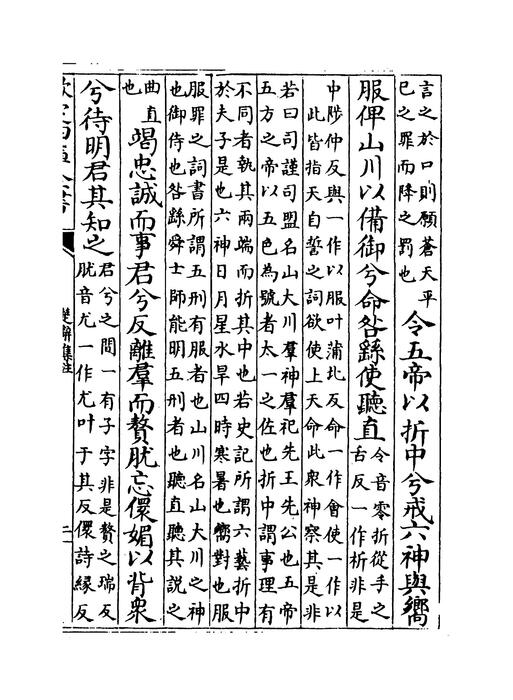 言之於口則願蒼天平
己之罪而降之罰也
令五帝以折中兮戒六神與嚮
服俾山川以備御兮命咎繇使聽直
令音零折從手之
舌反一作析非是
中陟仲反與一作以服叶蒲北反命一作會使一作以
此皆指天自誓之詞欲使上天命此衆神察其是非
若曰司謹司盟名山大川羣神羣祀先王先公也五帝
五方之帝以五色為號者太一之佐也折中謂事理有
不同者執其兩端而折其中也若史記所謂六藝折中
於夫子是也六神日月星水旱四時寒暑也嚮對也服
服罪之詞書所謂五刑有服者也山川名山大川之神
也御侍也咎繇舜士師能明五刑者也聽直聽其説之
曲直
也
竭忠誠而事君兮反離羣而贅肬忘儇媚以背衆
兮待明君其知之
君兮之間一有子字非是贅之瑞反
肬音尤一作尤叶于其反儇詩緣反
楚辭集注